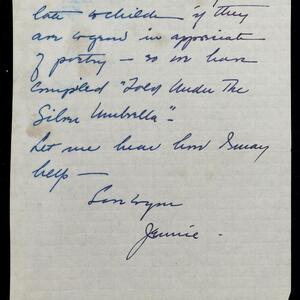 late to children if they
are to grow in appreciate
of poetry — so we have
compiled "Told Under The
Silver Umbrella"—
Let me hear how I may
help —
Jennie.